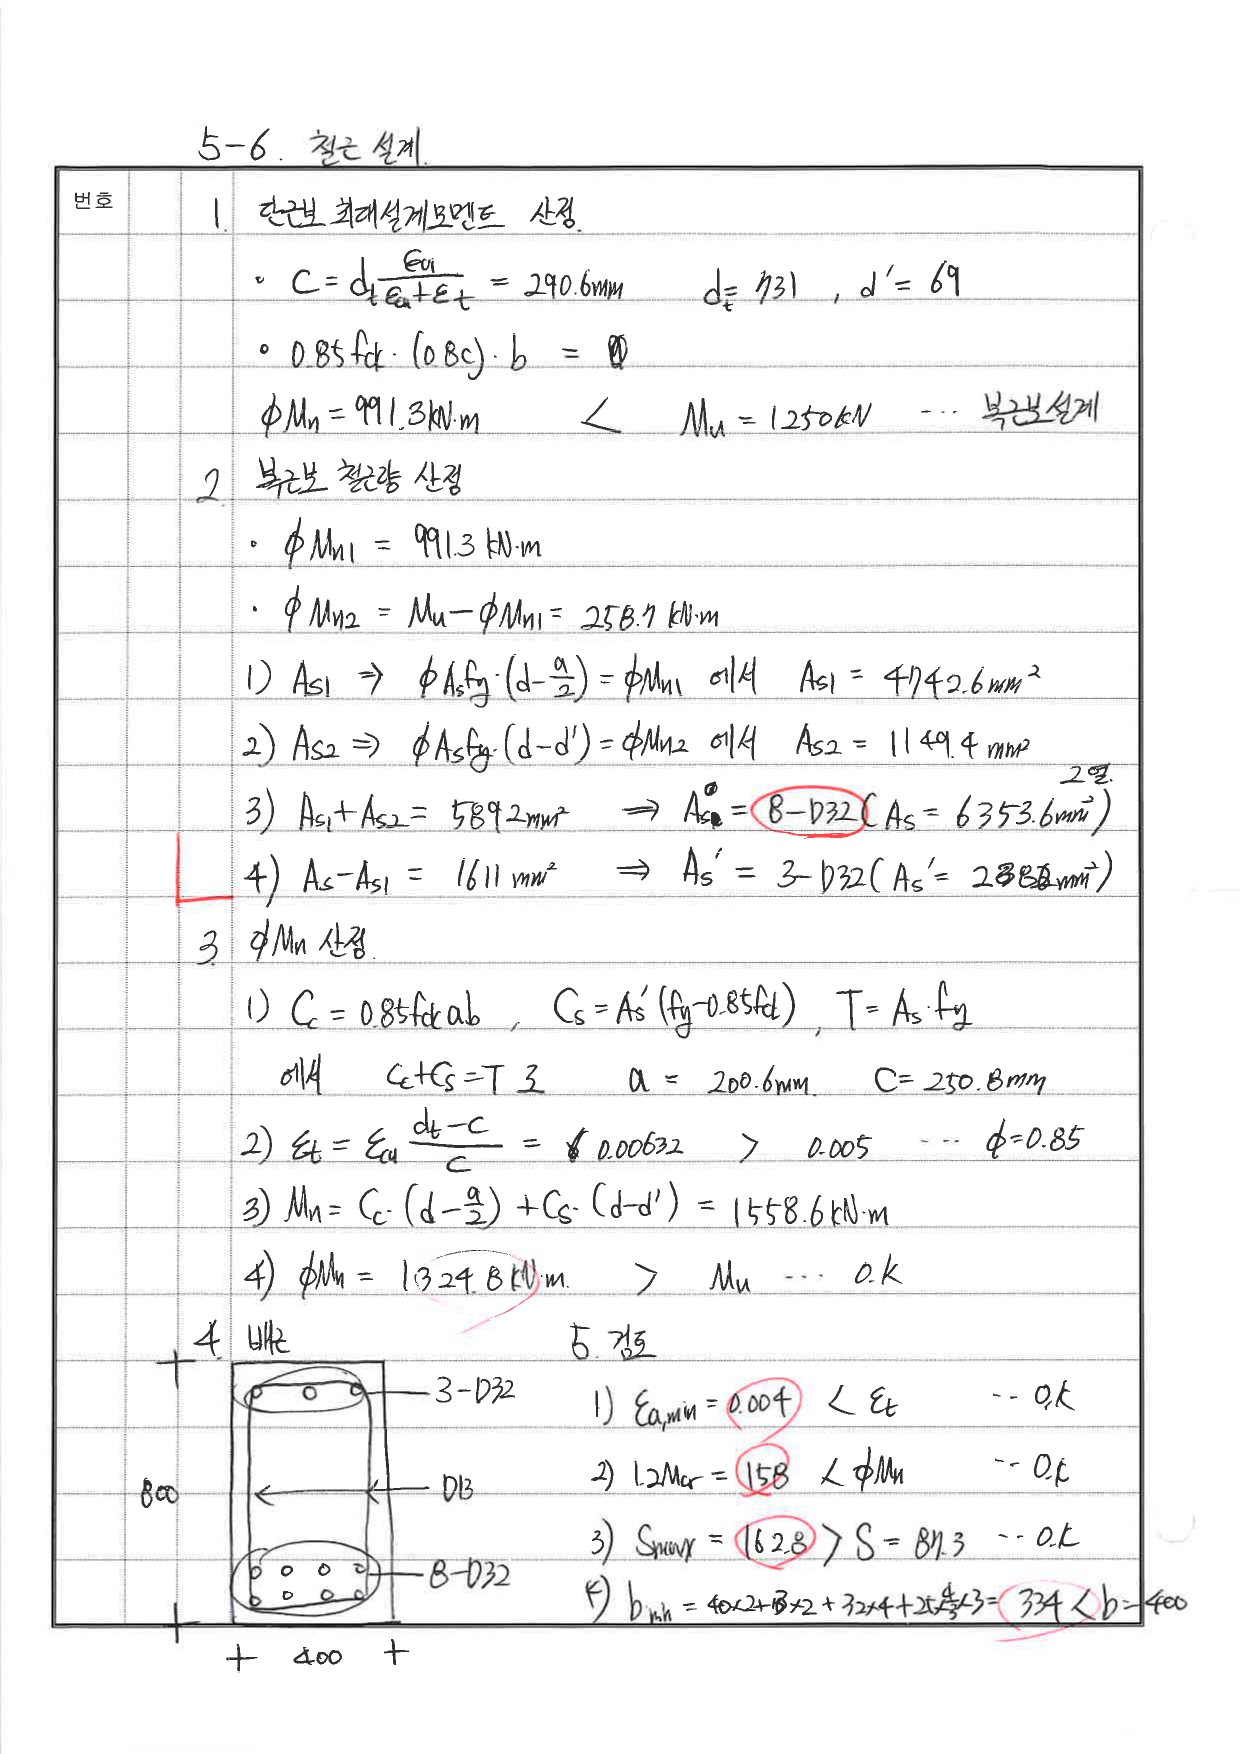 5-6. 철근 설계.
번호
1. 단근보 최대설계모멘트 산정.
• C = dt εcu/(εcu+εt) = 290.6mm dt = 731, d' = 69
• 0.85fck·(0.8c)·b =
φMn = 991.3kN·m < Mu = 1250kN ··· 복근보설계
2. 복근보 철근량 산정
• φMn1 = 991.3 kN·m
• φMn2 = Mu - φMn1 = 258.7 kN·m
1) As1 ⇒ φAsfy·(d-a/2) = φMn1 에서 As1 = 4742.6mm²
2) As2 ⇒ φAsfy·(d-d') = φMn2 에서 As2 = 1149.4 mm²
2열.
3) As1+As2 = 5892mm² ⇒ As = 8-D32 (As = 6353.6mm²)
4) As-As1 = 1611 mm² ⇒ As' = 3-D32 (As' = mm²)
3. φMn 산정.
1) Cc = 0.85fck ab, Cs = As'(fy-0.85fck), T = As·fy
에서 Cc+Cs=T 로 a = 200.6mm. C = 250.8mm
2) εt = εcu (dt-c)/c = 0.00632 > 0.005 ··· φ=0.85
3) Mn = Cc·(d-a/2) + Cs·(d-d') = 1558.6kN·m
4) φMn = 1324.8kN·m. > Mu ··· O.K
4. 배근
3-D32
800
D13
8-D32
400
5. 검토
1) εa,min = 0.004 < εt ·· O.K
2) 1.2Mcr = 158 < φMn ·· O.K
3) Smax = 162.8 > S = 87.3 ·· O.K
4) bmin = 40×2+13×2+32×4+25×4/3×3 = 334 < b = 400